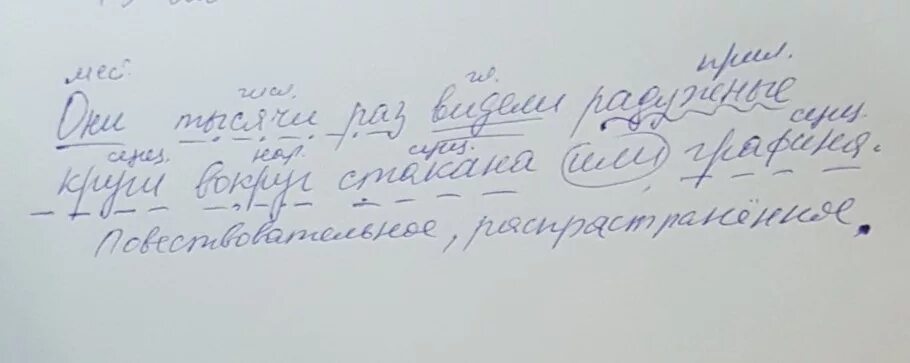 мес.
числ.
гл.
прил.
Они тысячи раз видели радужные
сущ. нар. сущ. сущ.
круги вокруг стакана или графина.
Повествовательное, распрастранённое.